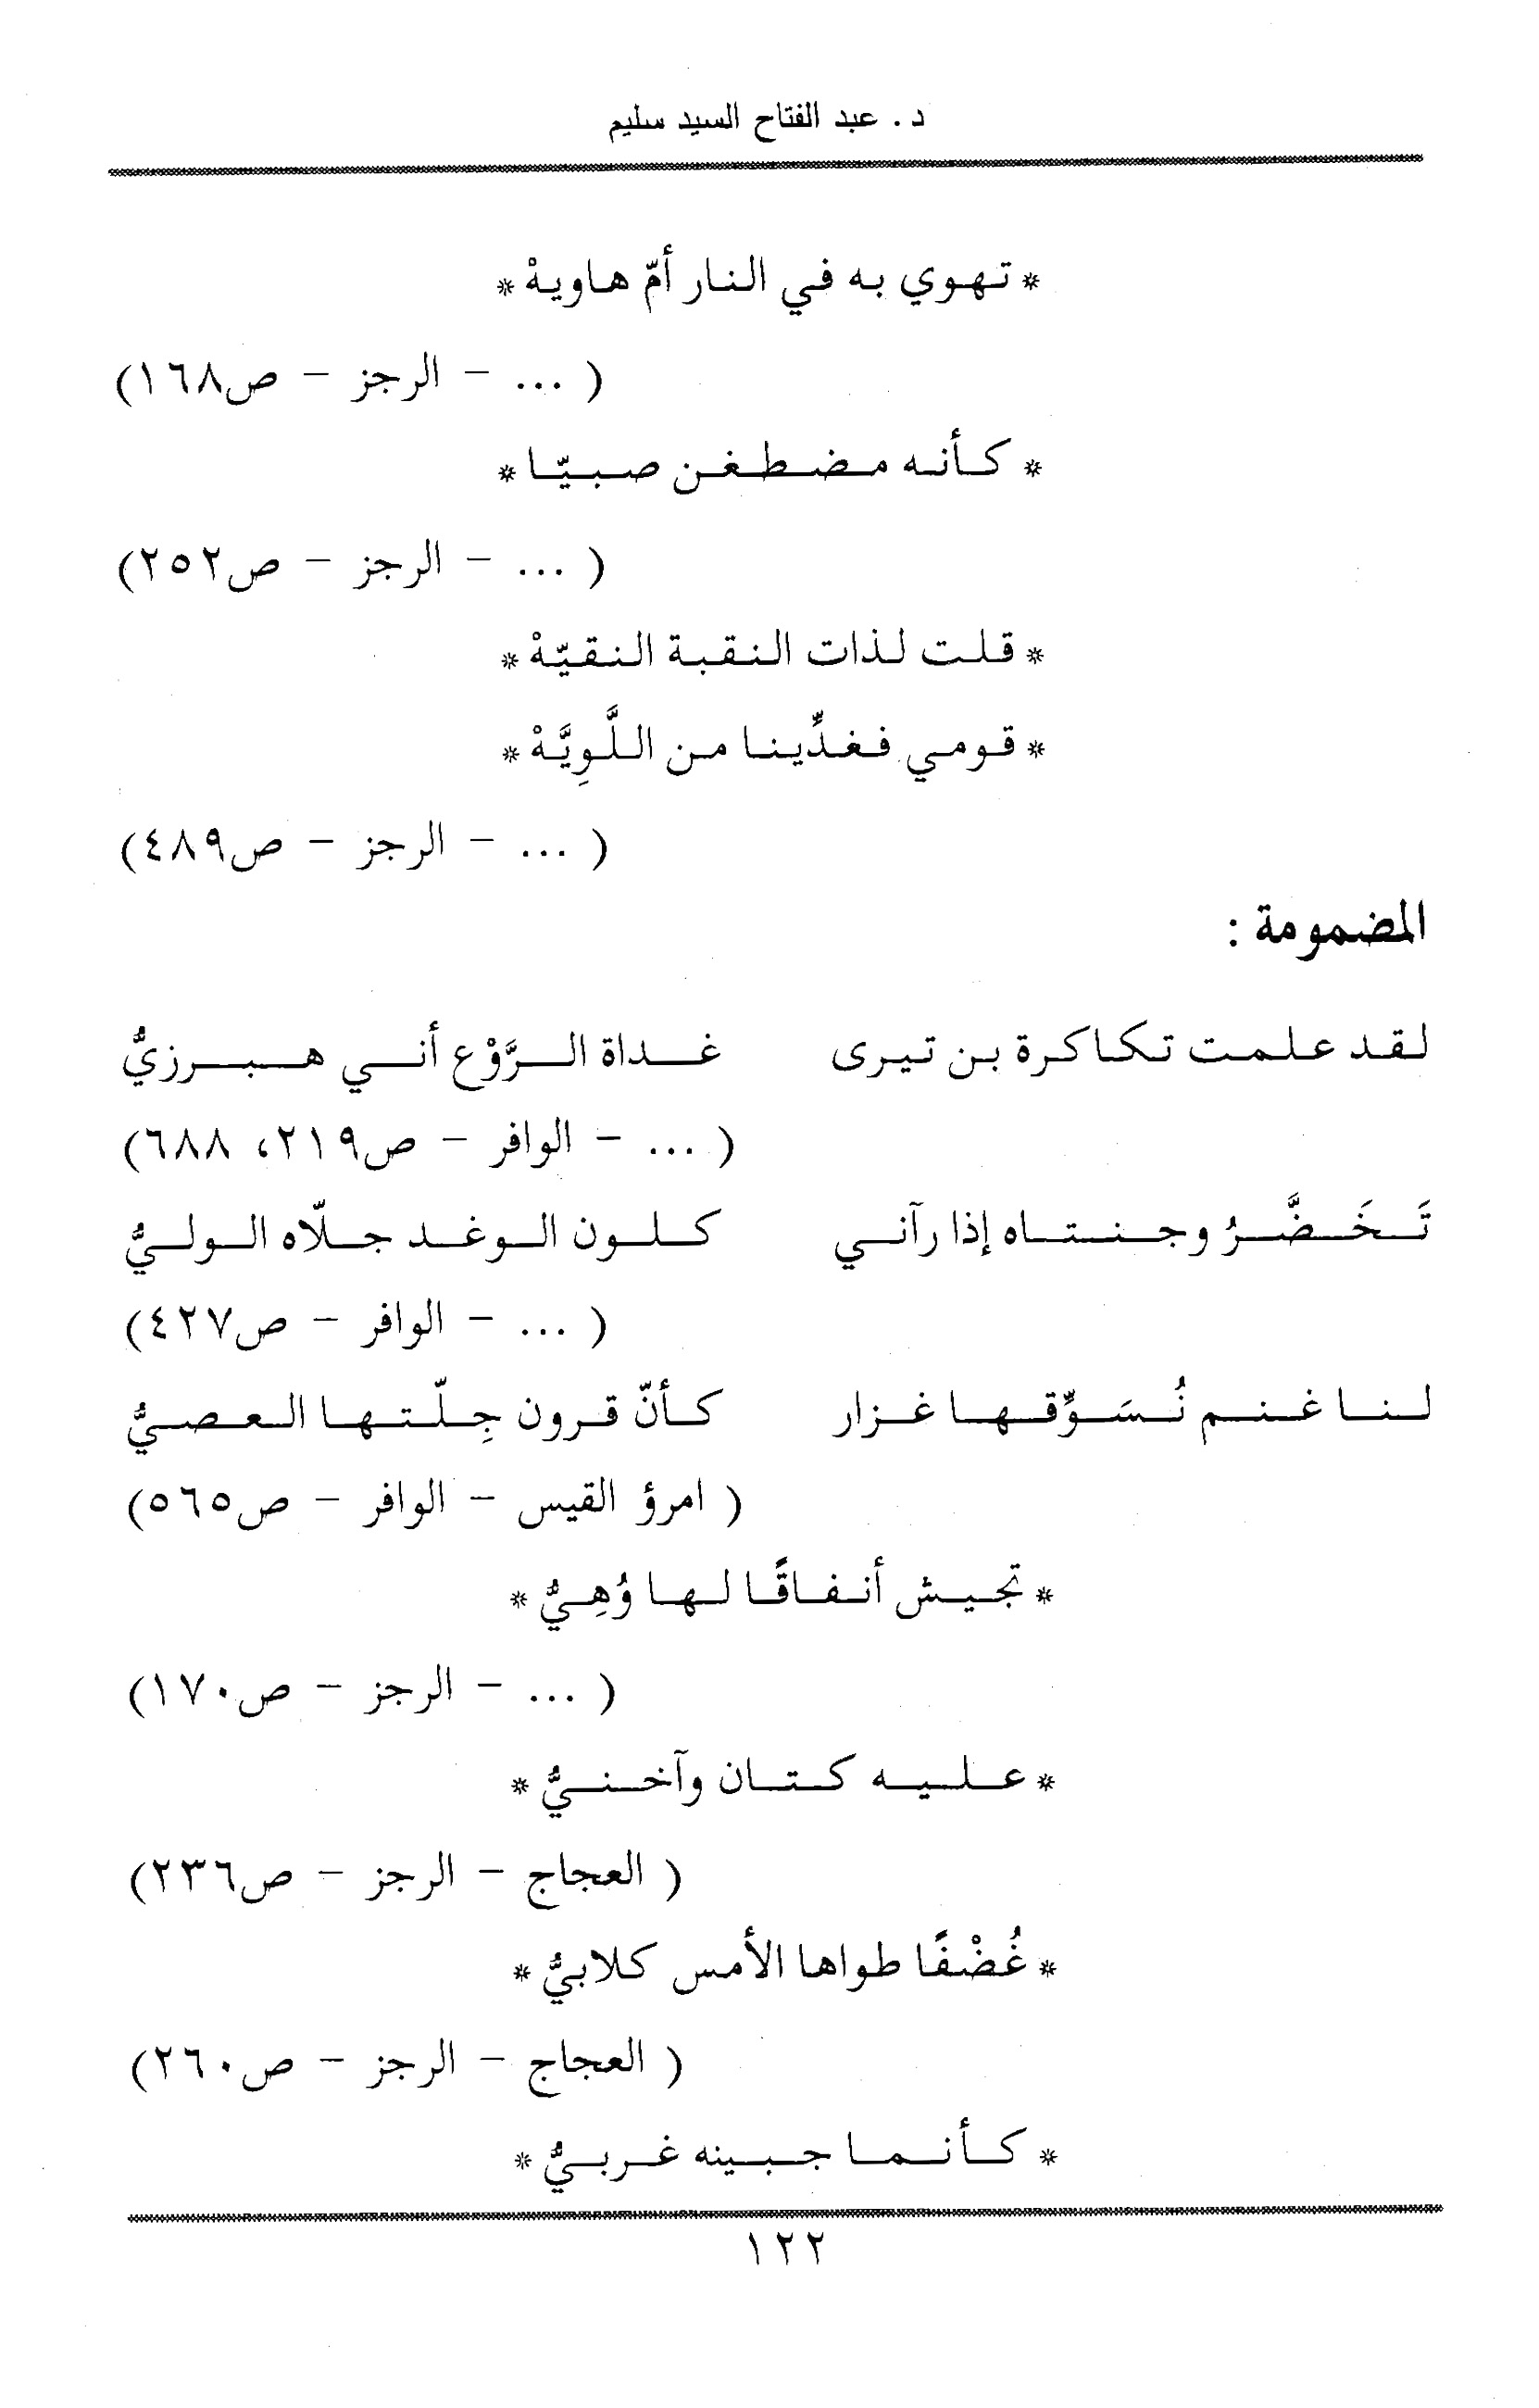 د. عبد الفتاح السيد سليم
* تهوي به في النار أمّ هاويهْ *
( ... – الرجز – ص١٦٨)
* كأنه مضطغن صبيّا *
( ... – الرجز – ص٢٥٢)
* قلت لذات النقبة النقيّهْ *
* قومي فغدِّينا من اللَّوِيَّهْ *
( ... – الرجز – ص٤٨٩)
المضمومة :
لقد علمت تكاكرة بن تيرى غداة الرَّوْع أني هبرزيُّ
( ... – الوافر – ص٢١٩، ٦٨٨)
تَخَضَّرُ وجنتاه إذا رآني كلون الوغد جلّاه الوليُّ
( ... – الوافر – ص٤٢٧)
لنا غنم نُسَوِّقها غزار كأنّ قرون جِلّتها العصيُّ
( امرؤ القيس – الوافر – ص٥٦٥)
* تجيش أنفاقًا لها وُهِيُّ *
( ... – الرجز – ص١٧٠)
* عليه كتان وآخنيُّ *
( العجاج – الرجز – ص٢٣٦)
* غُضْفًا طواها الأمس كلابيُّ *
( العجاج – الرجز – ص٢٦٠)
* كأنما جبينه غربيُّ *
١٢٢